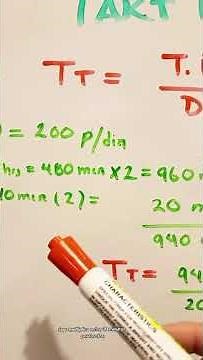 TAKT
T_T = T.
D
= 200 P/dia
hrs = 480 min x 2 = 960 m
10 min (2) = 20 m
940
T_T = 94
20
CHARACTERISTICS